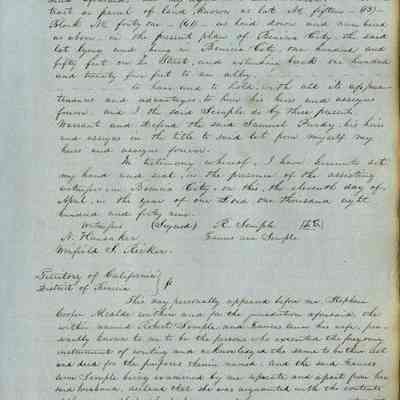 tract or parcel of land, known as lot No fifteen - (15) -
Block No forty one - (41) - as laid down and numbered
as above, in the present plan of Benicia City, the said
lot lying and being in Benicia City, one hundred and
fifty feet on the Street, and extending back one hundred
and twenty five feet to an alley.
to have and to hold with all its appur-
tenances and advantages, to him his heirs and assigns
forever, and I the said Semple do by these presents,
Warrant and defend the said Samuel Purdy, his heirs
and assigns in the title to said lot from myself my
heirs and assigns forever.
In testimony whereof, I have hereunto set
my hand and seal, in the presence of the attesting
witnesses, in Benicia City, on this, the eleventh day of
April, in the year of our Lord one thousand eight
hundred and forty nine.
Witnesses (Signed) R. Semple
N. Hunsaker Semple
Territory of California
District of Benicia
This day personally appeared before me, Stephen
Cooper Alcalde within and for the jurisdiction aforesaid, the
within named Robert Semple, and his wife, per-
sonally known to me to be the persons who executed the foregoing
instrument of writing and acknowledged the same to be their act
and deed for the purposes therein named. And the said
Semple being examined by me separate and apart from her
said husband, declared that she was acquainted with the contents